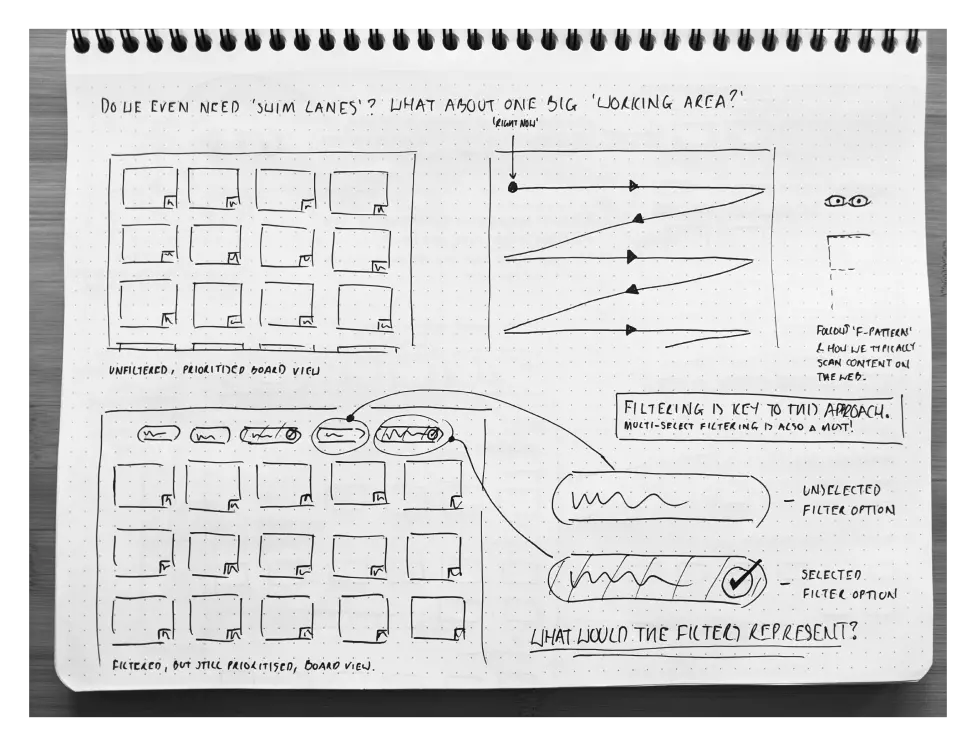 DO WE EVEN NEED 'SWIM LANES'? WHAT ABOUT ONE BIG 'WORKING AREA?'
'RIGHT NOW'
UNFILTERED, PRIORITISED BOARD VIEW
FOLLOWS 'F-PATTERN'
& HOW WE TYPICALLY
SCAN CONTENT ON
THE WEB.
FILTERING IS KEY TO THIS APPROACH.
MULTI-SELECT FILTERING IS ALSO A MUST!
– UNSELECTED
FILTER OPTION
– SELECTED
FILTER OPTION
WHAT WOULD THE FILTERS REPRESENT?
FILTERED, BUT STILL PRIORITISED, BOARD VIEW.